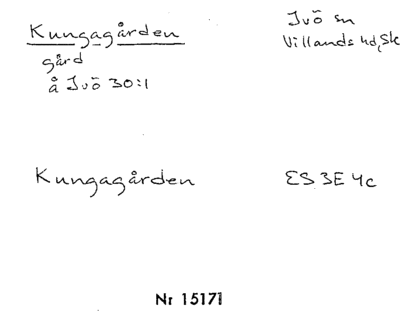 Kungagården
Ivö sn
Villands hd, Sk
gård
å Ivö 30:1
Kungagården
ES 3E 4c
Nr 15171